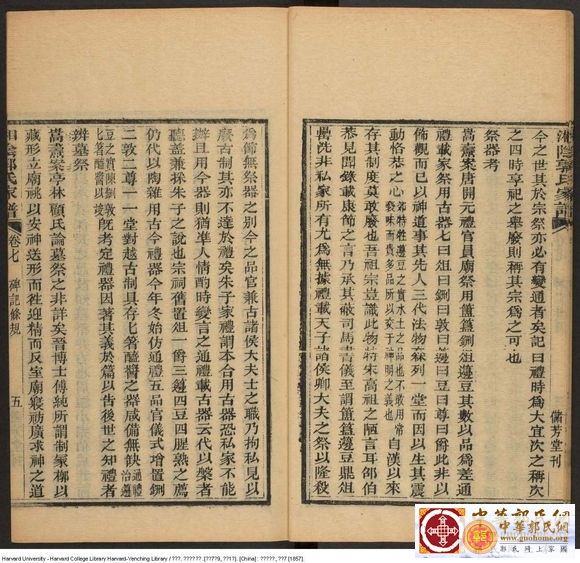 湘陰郭氏家譜
儲芳堂刊
今之世其於宗祭亦必有變通者矣記曰禮時為大宜次之稱次
之四時享祀之舉廢則稱其宗為之可也
祭器考
嵩燾案唐開元禮官員廟祭用簠簋鉶俎籩豆其數以品為差通
禮載家祭用古器七曰俎曰鉶曰敦曰籩曰豆曰尊曰爵此非以
飾觀而已以神道事其先人三代法物森列一堂而因以生其震
動恪恭之心
郊特牲籩豆之實水土之品也不敢用常
褻味而貴多品所以交於神明之義也
自漢以來
存其制度莫敢廢也吾祖宗豈識此物特朱高祖之陋言耳邵伯
恭見聞錄載康節之言乃承其敬司馬書儀至謂簠簋籩豆鼎俎
罍洗非私家所有尤為無據禮載天子諸侯卿大夫之祭以隆殺
為節無祭器之別今之品官兼古諸侯大夫士之職乃拘私見以
廢古制其亦不達於禮矣朱子家禮謂本合用古器恐私家不能
辦且用今器則猶準人情酌時變言之通禮載古器云代以槃者
聽蓋兼採朱子之說也宗祠舊置俎一爵三籩四豆四腥熟之薦
仍代以陶雜用古今禮器今年冬始仿通禮五品官儀式增置鉶
二敦二尊一一堂對越古制具存
醢醬之器咸備無缺
通禮
豆之實
既考定禮器因著其義於篇以告後世之知禮者
辨墓祭
嵩燾案亭林顧氏論墓祭之非詳矣晉博士傅純所謂制冢椰以
藏形立廟祧以安神送形而往迎精而反室廟寢祊廣求神之道
郭氏家譜
卷七
碑記條規
五
中華郭氏網
中華郭氏網
www.guohome.org
郭氏網上家園
Harvard University - Harvard College Library Harvard-Yenching Library / ???. ??????. [????9, ??1?]. [China] : ?????, ??7 [1857].